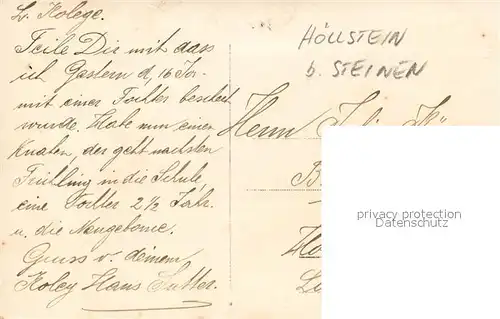 L. Kolege.
Teile Dir mit dass
ich Gestern d, 16 Jor-
mit einer Tochter beschert
wurde. Habe nun einen
Knaben, der geht nächsten
Frühling in die Schule,
eine Tochter 2 1/2 Jahr.
u. die Neugeborne.
Gruss v. deinem
Koleg Hans Sutter.
HÖLLSTEIN
b. STEINEN
Herrn
privacy protection
Datenschutz